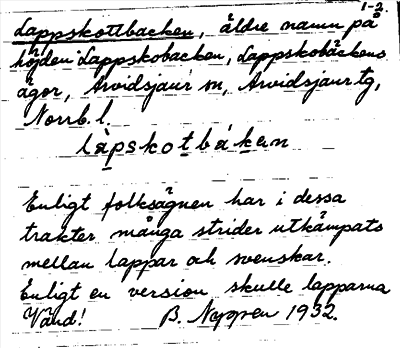 1-2.
Lappskottbacken, äldre namn på
höjden Lappskobacken, Lappskobäckens
ägor, Arvidsjaur sn, Arvidsjaur tg,
Norrb. l.
làpskotbáken
Enligt folksägnen har i dessa
trakter många strider utkämpats
mellan lappar och svenskar.
Enligt en version skulle lapparna
Vänd! B. Nyppen 1932.